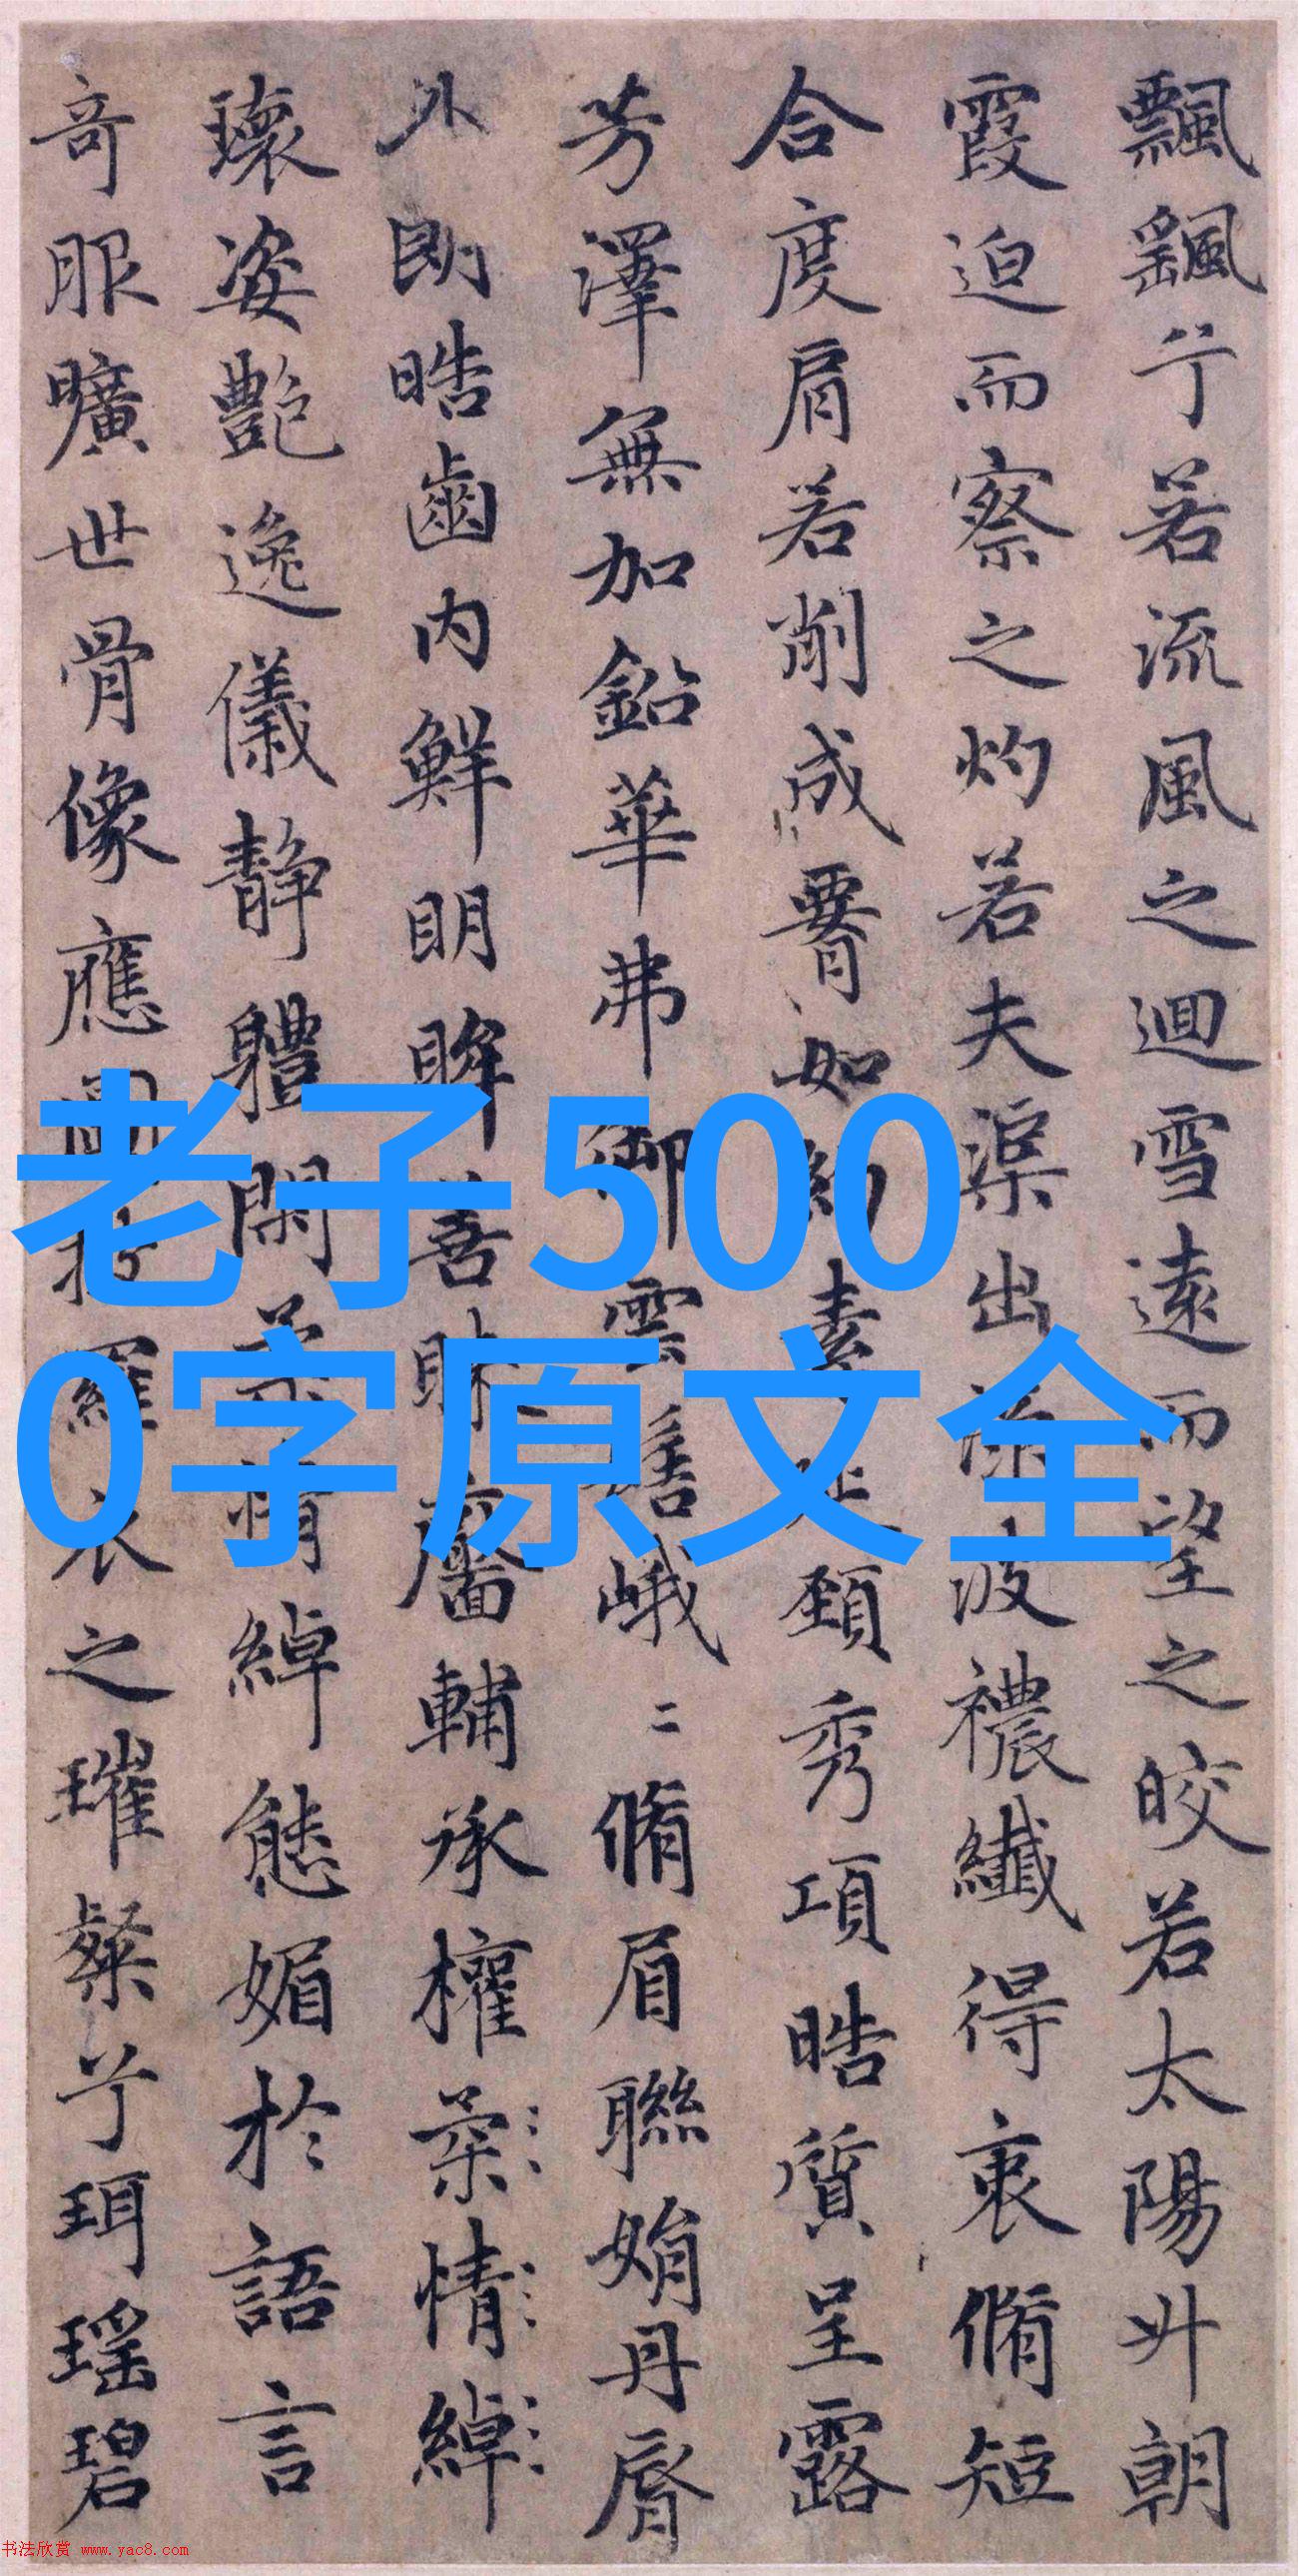 飄颻兮若流風之迴雪遠而望之皎若太陽升朝
霞迫而察之灼若夫渠出渌波禯纖得衷脩短
合度肩若削成䙅如約素延頸秀項晧質呈露
芳澤無加鉛華弗御雲髻峨〻脩眉聯娟丹脣
外朗晧齒内鮮明眸善睞靨輔承權柔情綽
瓌姿艷逸儀静體閑柔情綽態媚於語言
奇服曠世骨像應圖披羅衣之璀粲兮珥瑶碧
老子500
0字原文全
书法欣赏 www.yac8.com